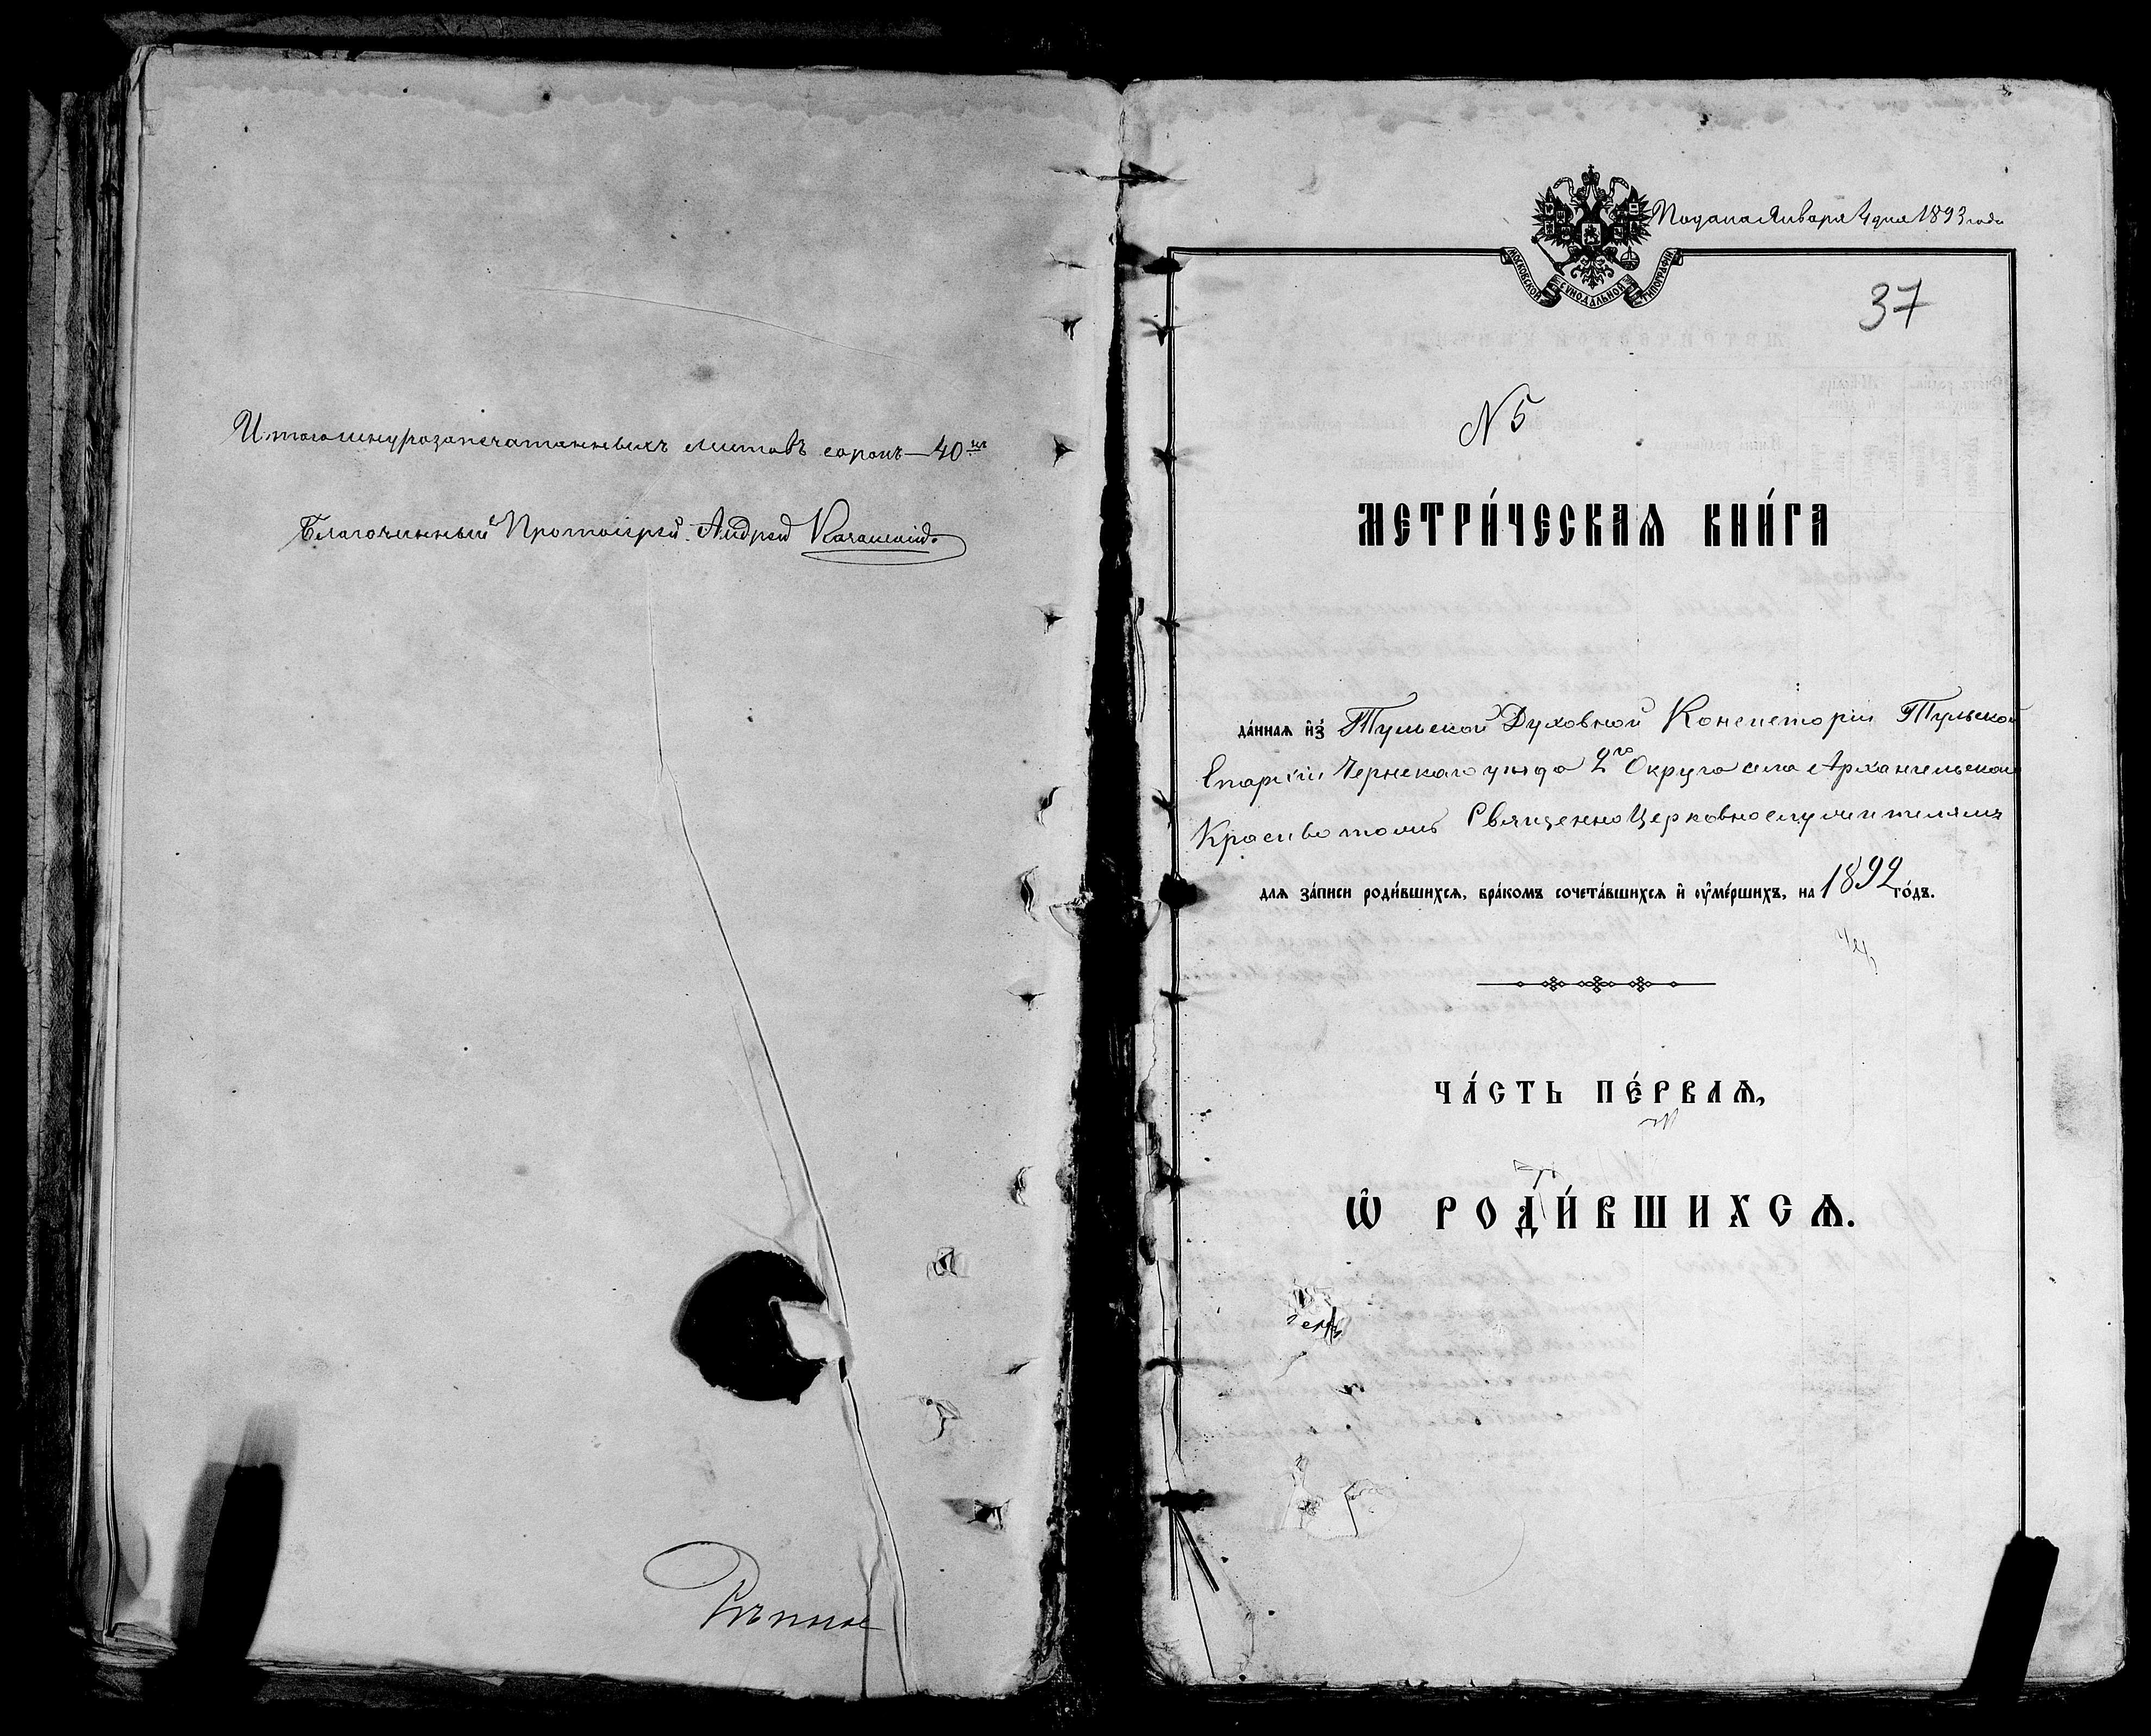 Итого шнурозапечатанныхъ листовъ сорокъ — 40 лл
Благочинный Протоіерей Андрей
Подана Января 4 дня 1893 года
МОСКОВСКОЙ СѴНОДАЛЬНОЙ ТИПОГРАФІИ
37
N 5
МЕТРИ́ЧЕСКАѦ КНИ́ГА
да́ннаѧ и҆з̾ Тульской Духовной Консисторіи Тульской
Епархіи Чернскаго уѣзда 2го Округа села Архангельскаго
Красивое тожъ Священно Церковнослужителямъ
для за́писи роди́вшихсѧ, бра́комъ сочета́вшихсѧ и҆ ᲂу҆ме́ршихъ, на 1892 го́дъ.
ЧА́СТЬ ПЕ́РВАѦ,
Ѡ҆ РОДИ́ВШИХСѦ.